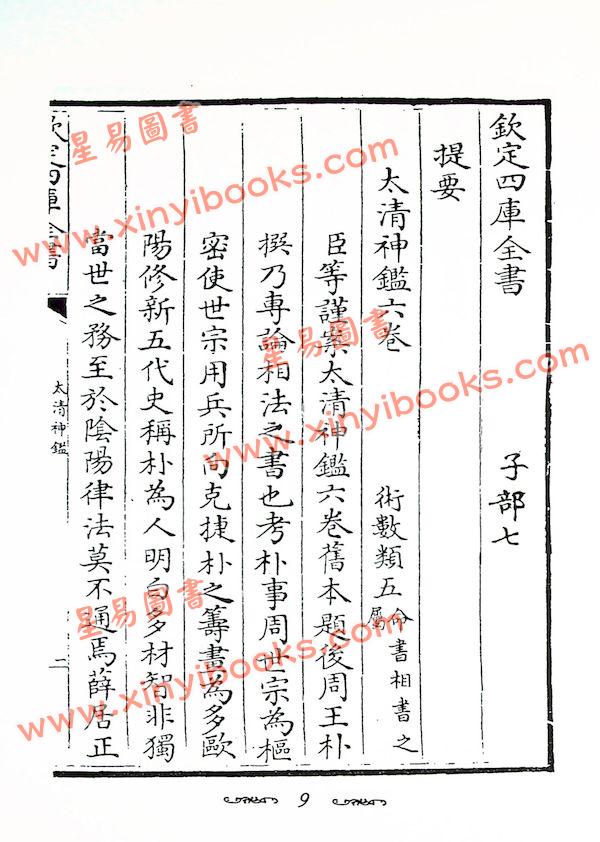 欽定四庫全書　子部七
提要
太清神鑑六卷　術數類五命書相書之屬
臣等謹案太清神鑑六卷舊本題後周王朴
撰乃專論相法之書也考朴事周世宗為樞
密使世宗用兵所向克捷朴之籌畫為多歐
陽修新五代史稱朴為人明白多材智非獨
當世之務至於陰陽律法莫不通焉薛居正
欽定四庫全書
太清神鑑
二
星易圖書
www.xinyibooks.com
星易圖書
www.xinyibooks.com
星易圖書
www.xinyibooks.com
9